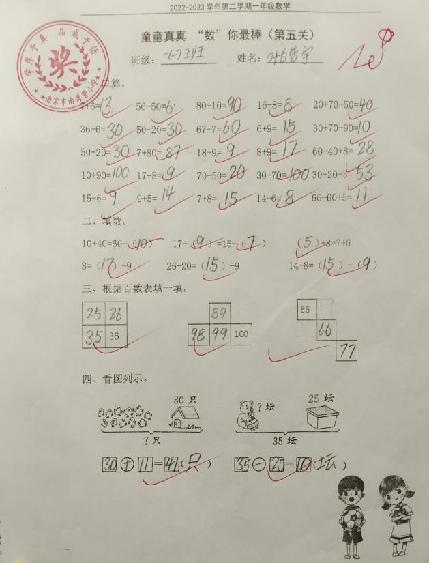 2022-2023学年第二学期一年级数学
童童真真 “数”你最棒（第五关）
班级： 姓名：
7+6=13 56-50=6 80+10=90 16-8=8 20+70-50=40
36-6=30 50-20=30 67-7=60 6+9=15 30+70-90=10
50-20=30 7+80=87 18-9=9 8+9=17 60-40+8=28
10+90=100 17-8=9 70-50=20 30+70=100 30-20+3=53
15-6=9 9+5=14 7+8=15 14-6=8 66-60+5=11
二、填数。
10+40=30+(10) 17-(9)=15-(7) (5)+8=7+6
8=(17)-9 26-20=(15)-9 14-8=(15)-(9)
三、根据百数表填一填。
25 26 89 55
35 36 98 99 100 66
77
四、看图列示。
30只 ?坛 25坛
?只 35坛
35-25=10(坛)